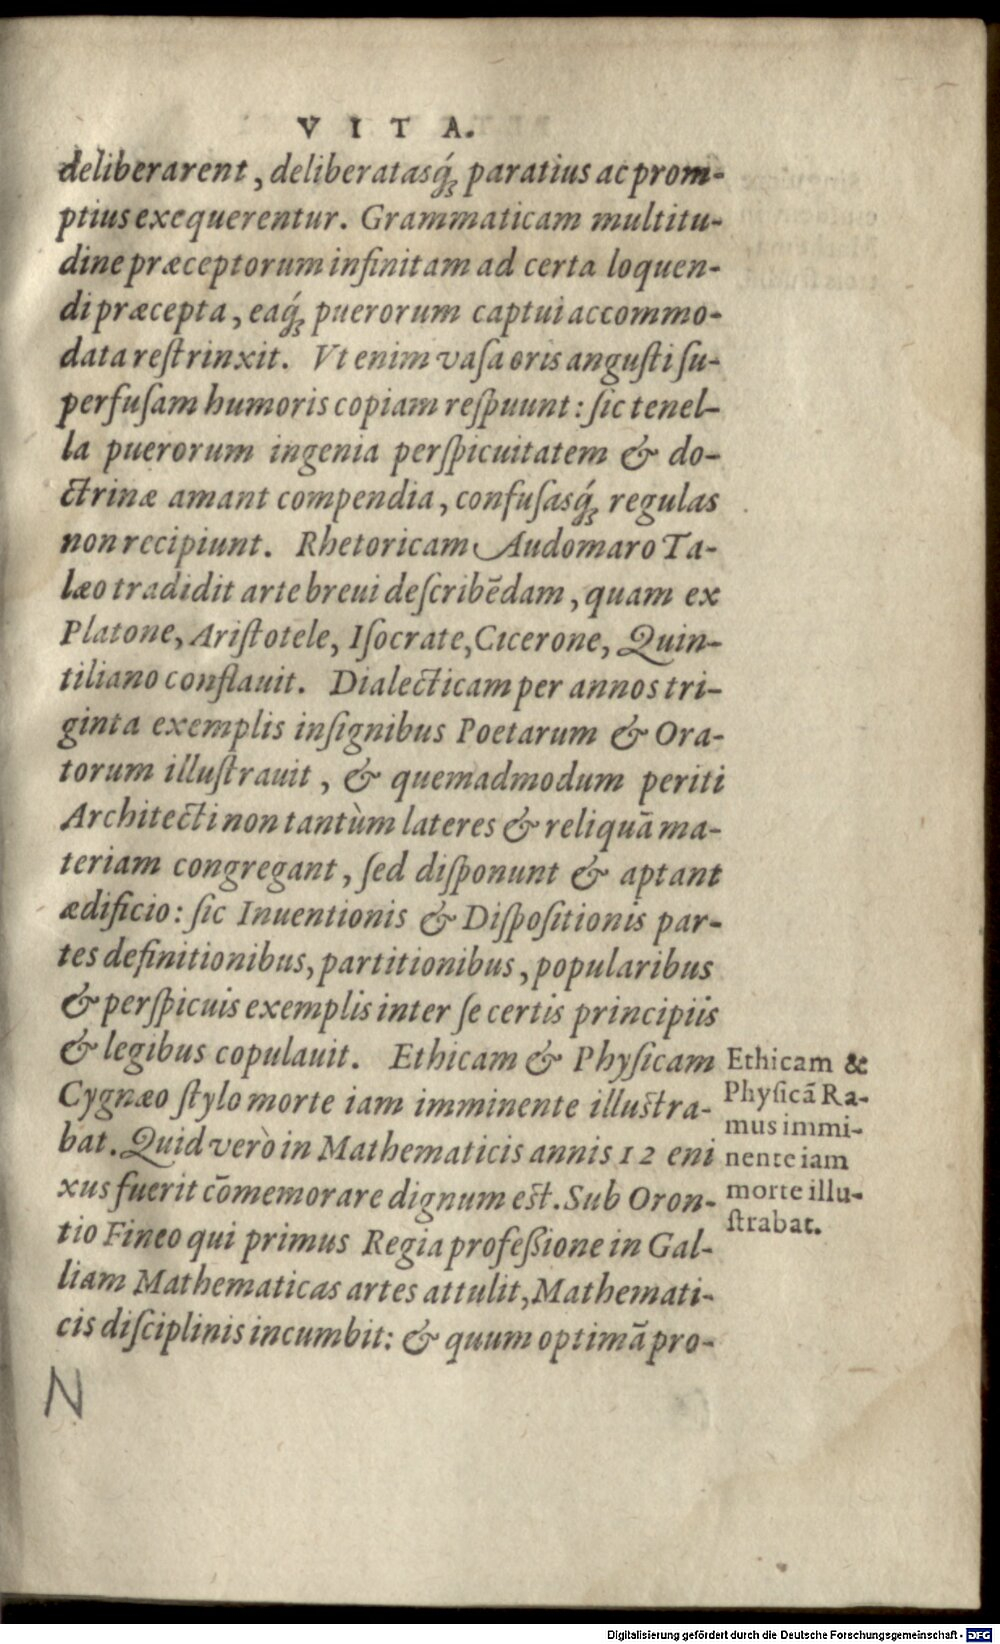 VITA.
deliberarent, deliberatasq́ꝫ paratius ac prom-
ptius exequerentur. Grammaticam multitu-
dine præceptorum infinitam ad certa loquen-
di præcepta, eaq́ꝫ puerorum captui accommo-
data reſtrinxit. Vt enim vaſa oris anguſti ſu-
perfuſam humoris copiam reſpuunt: ſic tenel-
la puerorum ingenia perſpicuitatem & do-
ctrinæ amant compendia, confuſasq́ꝫ regulas
non recipiunt. Rhetoricam Audomaro Ta-
læo tradidit arte breui deſcribẽdam, quam ex
Platone, Ariſtotele, Iſocrate, Cicerone, Quin-
tiliano conflauit. Dialecticam per annos tri-
ginta exemplis inſignibus Poetarum & Ora-
torum illuſtrauit, & quemadmodum periti
Architecti non tantùm lateres & reliquã ma-
teriam congregant, ſed diſponunt & aptant
ædificio: ſic Inuentionis & Diſpoſitionis par-
tes definitionibus, partitionibus, popularibus
& perſpicuis exemplis inter ſe certis principiis
& legibus copulauit. Ethicam & Phyſicam
Cygnæo ſtylo morte iam imminente illuſtra-
bat. Quid verò in Mathematicis annis 12 eni
xus fuerit cõmemorare dignum eſt. Sub Oron-
tio Fineo qui primus Regia profeßione in Gal-
liam Mathematicas artes attulit, Mathemati-
cis diſciplinis incumbit: & quum optimã pro-
Ethicam &
Phyſicã Ra-
mus immi-
nente iam
morte illu-
ſtrabat.
N
Digitalisierung gefördert durch die Deutsche Forschungsgemeinschaft - DFG